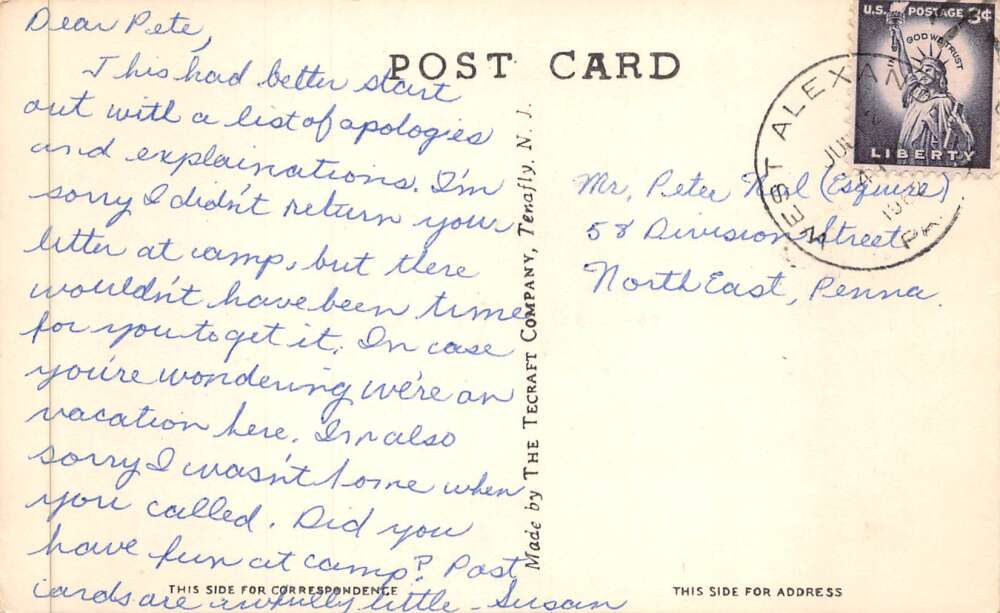 Dear Pete,
This had better start
out with a list of apologies
and explainations. I'm
sorry I didn't return your
letter at camp, but there
wouldn't have been time
for you to get it. In case
you're wondering we're on
vacation here. I'm also
sorry I wasn't home when
you called. Did you
have fun at camp? Post
cards are awfully little - Susan
THIS SIDE FOR CORRESPONDENCE
POST CARD
Made by THE TECRAFT COMPANY, Tenafly, N. J.
U.S. POSTAGE 3¢
IN GOD WE TRUST
LIBERTY
WEST ALEXAN
PA
Mr. Peter (Esquire)
58 Division Street
North East, Penna.
THIS SIDE FOR ADDRESS